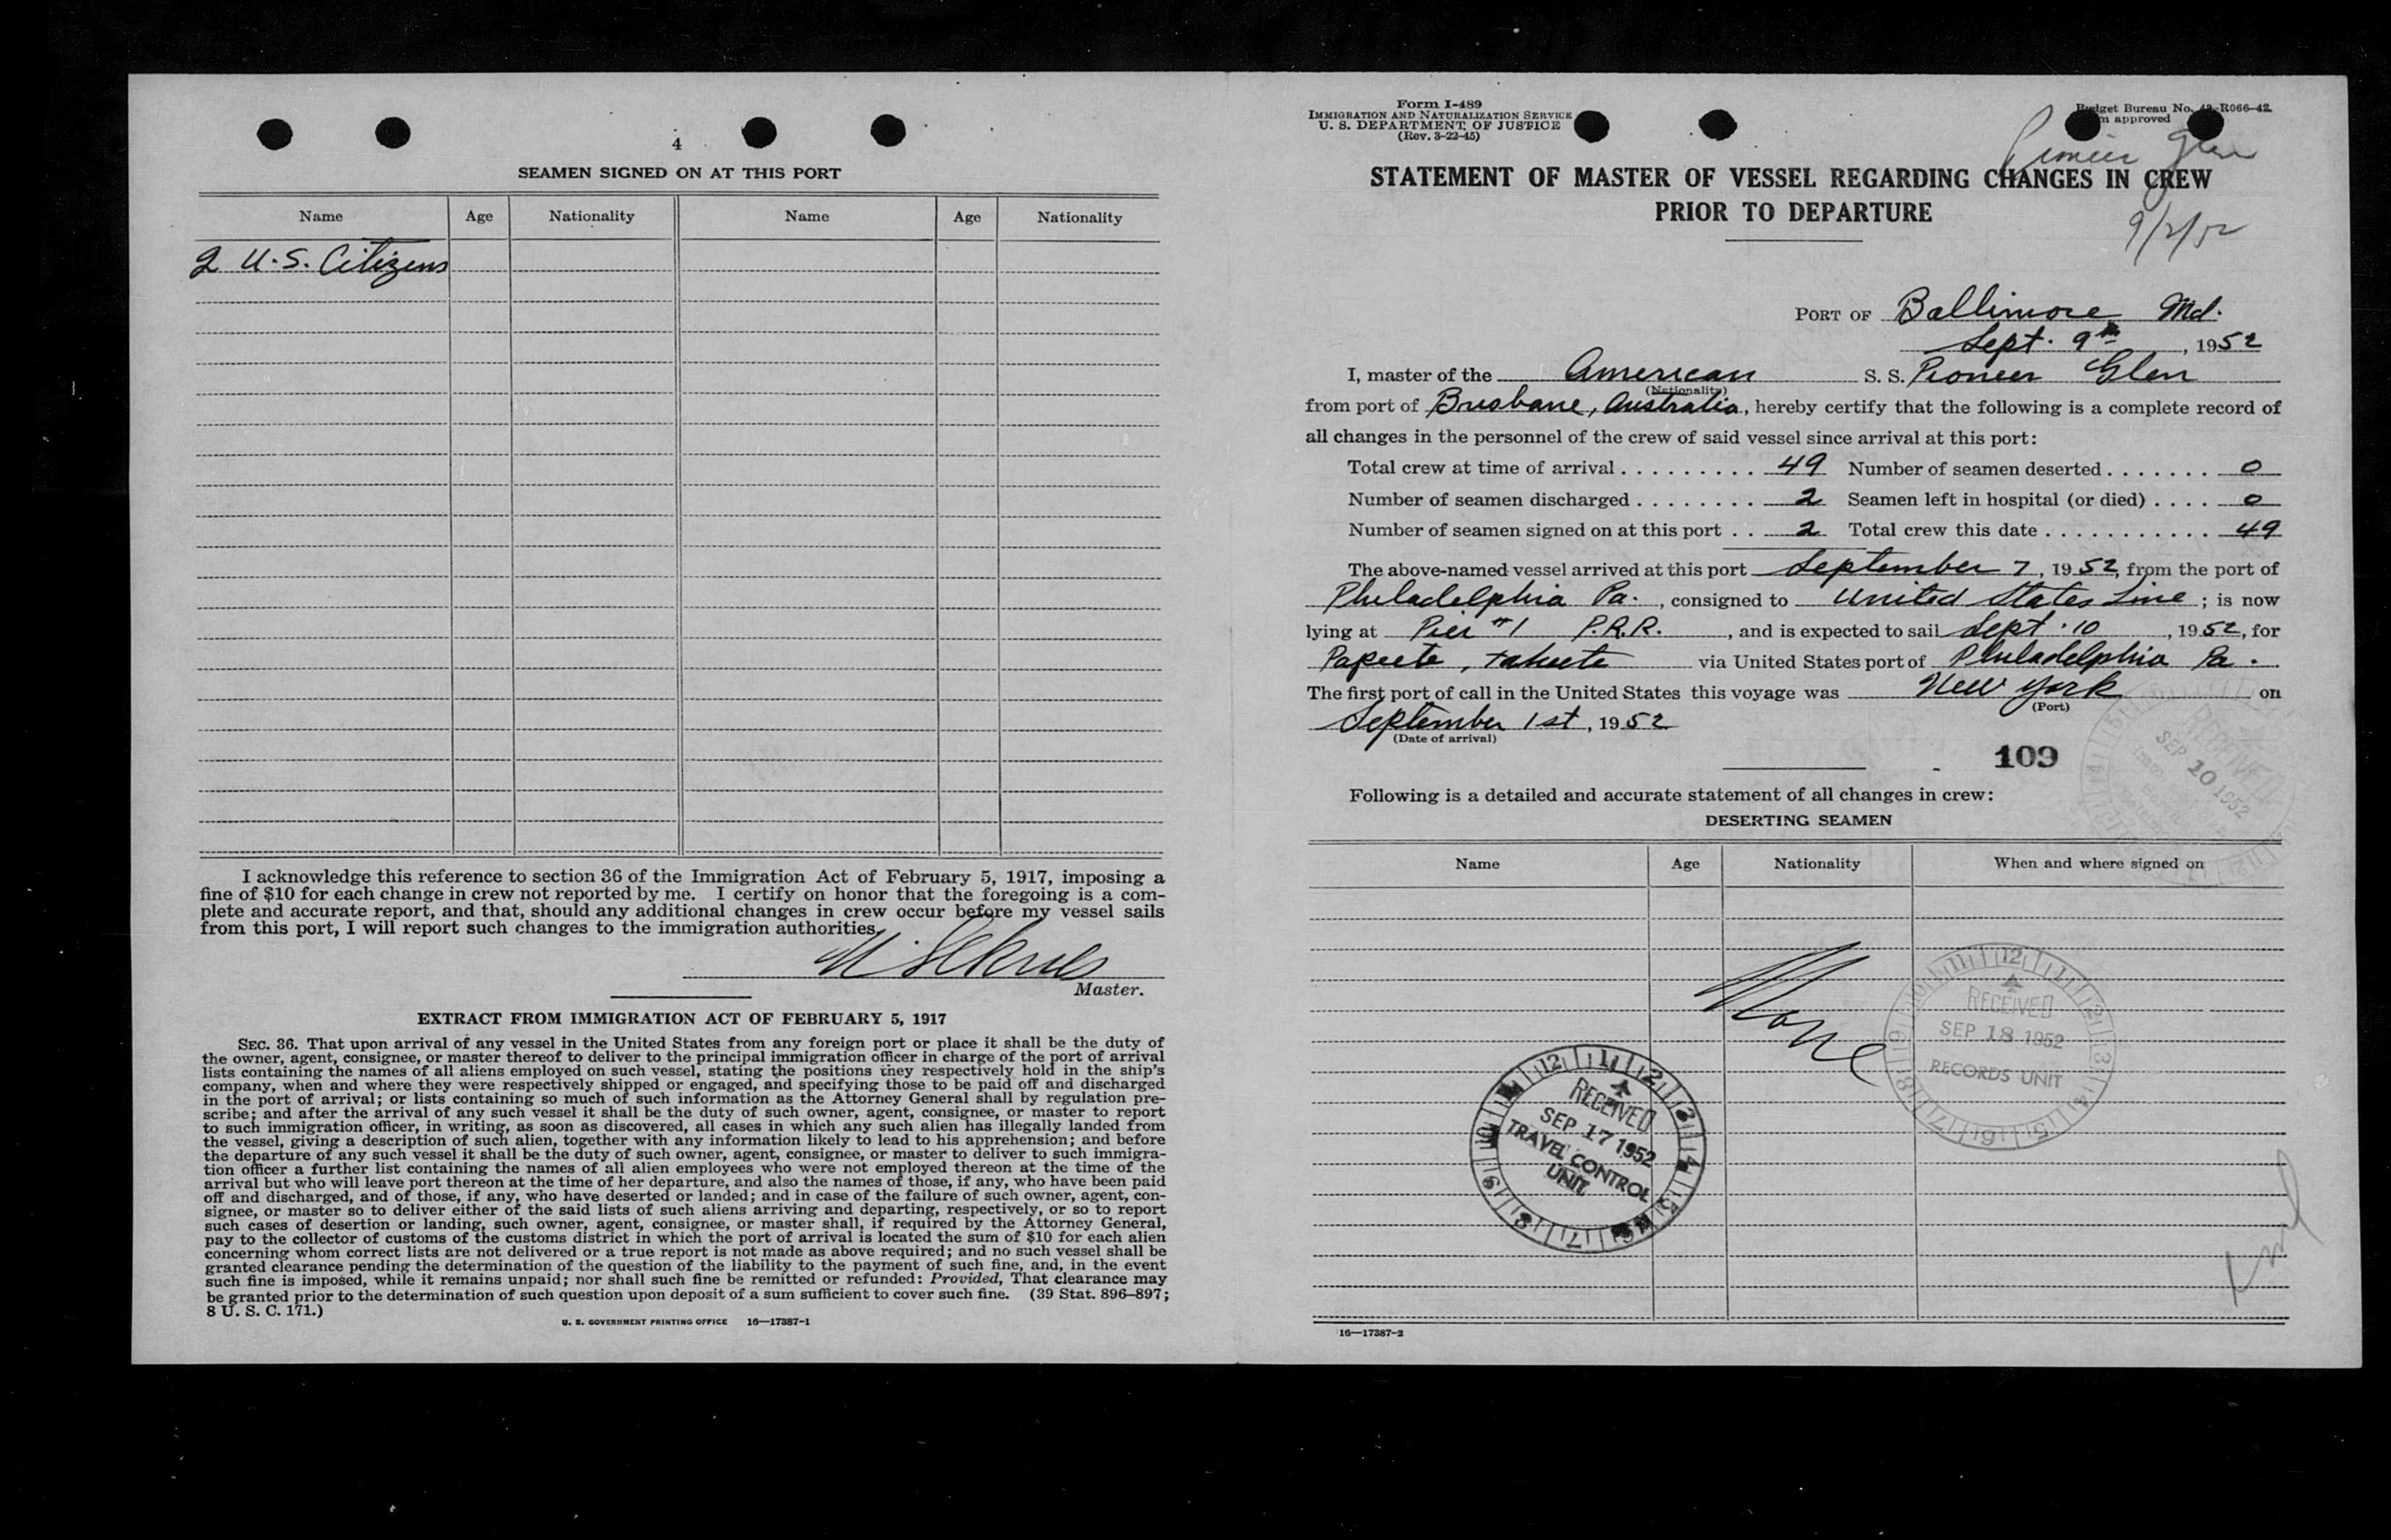 4
SEAMEN SIGNED ON AT THIS PORT
Name Age Nationality Name Age Nationality
2 U.S. Citizens
I acknowledge this reference to section 36 of the Immigration Act of February 5, 1917, imposing a
fine of $10 for each change in crew not reported by me. I certify on honor that the foregoing is a com-
plete and accurate report, and that, should any additional changes in crew occur before my vessel sails
from this port, I will report such changes to the immigration authorities.
Master.
EXTRACT FROM IMMIGRATION ACT OF FEBRUARY 5, 1917
SEC. 36. That upon arrival of any vessel in the United States from any foreign port or place it shall be the duty of
the owner, agent, consignee, or master thereof to deliver to the principal immigration officer in charge of the port of arrival
lists containing the names of all aliens employed on such vessel, stating the positions they respectively hold in the ship's
company, when and where they were respectively shipped or engaged, and specifying those to be paid off and discharged
in the port of arrival; or lists containing so much of such information as the Attorney General shall by regulation pre-
scribe; and after the arrival of any such vessel it shall be the duty of such owner, agent, consignee, or master to report
to such immigration officer, in writing, as soon as discovered, all cases in which any such alien has illegally landed from
the vessel, giving a description of such alien, together with any information likely to lead to his apprehension; and before
the departure of any such vessel it shall be the duty of such owner, agent, consignee, or master to deliver to such immigra-
tion officer a further list containing the names of all alien employees who were not employed thereon at the time of the
arrival but who will leave port thereon at the time of her departure, and also the names of those, if any, who have been paid
off and discharged, and of those, if any, who have deserted or landed; and in case of the failure of such owner, agent, con-
signee, or master so to deliver either of the said lists of such aliens arriving and departing, respectively, or so to report
such cases of desertion or landing, such owner, agent, consignee, or master shall, if required by the Attorney General,
pay to the collector of customs of the customs district in which the port of arrival is located the sum of $10 for each alien
concerning whom correct lists are not delivered or a true report is not made as above required; and no such vessel shall be
granted clearance pending the determination of the question of the liability to the payment of such fine, and, in the event
such fine is imposed, while it remains unpaid; nor shall such fine be remitted or refunded: Provided, That clearance may
be granted prior to the determination of such question upon deposit of a sum sufficient to cover such fine. (39 Stat. 896–897;
8 U. S. C. 171.)
U. S. GOVERNMENT PRINTING OFFICE 16—17387-1
Form I-489
IMMIGRATION AND NATURALIZATION SERVICE
U. S. DEPARTMENT OF JUSTICE
(Rev. 3-22-45)
Budget Bureau No. 43-R066-42.
approved
Pioneer Glen
STATEMENT OF MASTER OF VESSEL REGARDING CHANGES IN CREW
PRIOR TO DEPARTURE
9/2/52
PORT OF Baltimore Md.
Sept. 9th, 1952
I, master of the American S. S. Pioneer Glen
(Nationality)
from port of Brisbane, Australia, hereby certify that the following is a complete record of
all changes in the personnel of the crew of said vessel since arrival at this port:
Total crew at time of arrival . . . . . . . . . 49 Number of seamen deserted . . . . . . . 0
Number of seamen discharged . . . . . . . . 2 Seamen left in hospital (or died) . . . . 0
Number of seamen signed on at this port . . 2 Total crew this date . . . . . . . . . . . 49
The above-named vessel arrived at this port September 7, 1952, from the port of
Philadelphia Pa., consigned to United States Line; is now
lying at Pier #1 P.R.R., and is expected to sail Sept. 10, 1952, for
Papeete, Taheete via United States port of Philadelphia Pa.
The first port of call in the United States this voyage was New York on
(Port)
September 1st, 1952
(Date of arrival)
109
RECEIVED
SEP 10 1952
Following is a detailed and accurate statement of all changes in crew:
DESERTING SEAMEN
Name Age Nationality When and where signed on
None
RECEIVED
SEP 18 1952
RECORDS UNIT
RECEIVED
SEP 17 1952
TRAVEL CONTROL
UNIT
16—17387-2